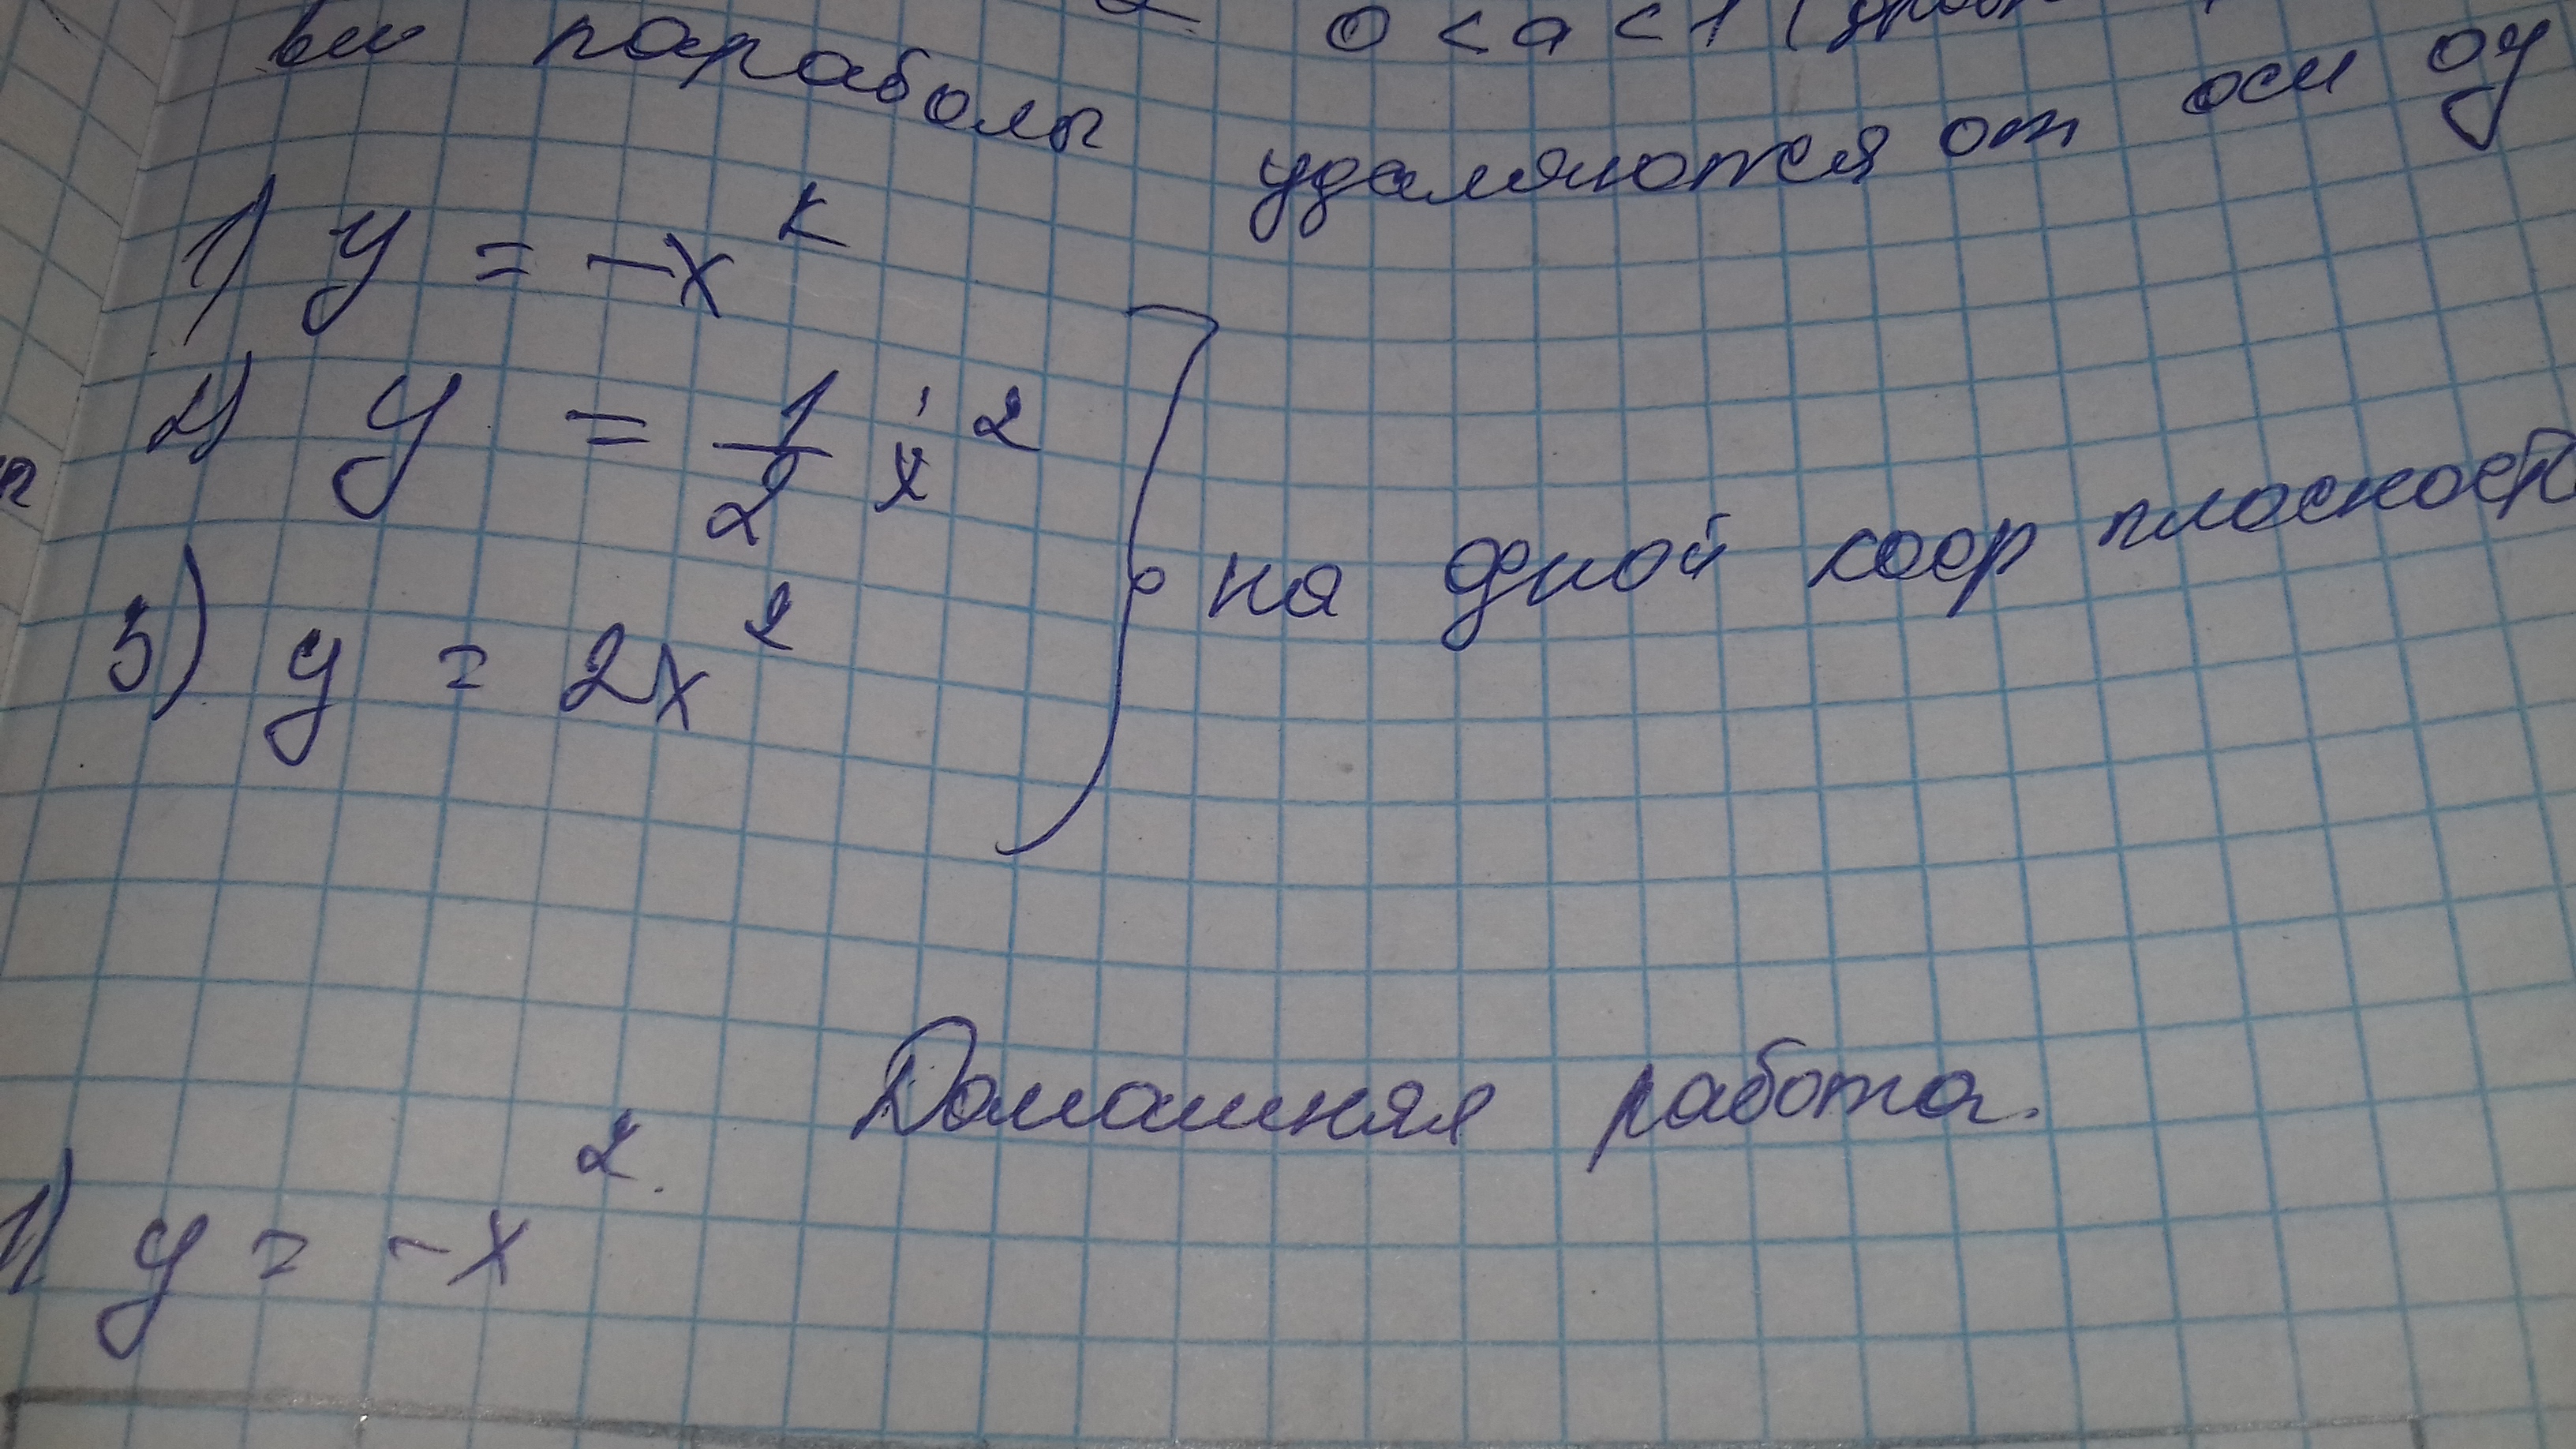 0 < a < 1 (
ви параболы удаляются от оси оу
1) y = -x²
2) y = 1/2 x²
3) y = 2x²
на одной коор плоскост
Домашняя работа.
1) y = -x².